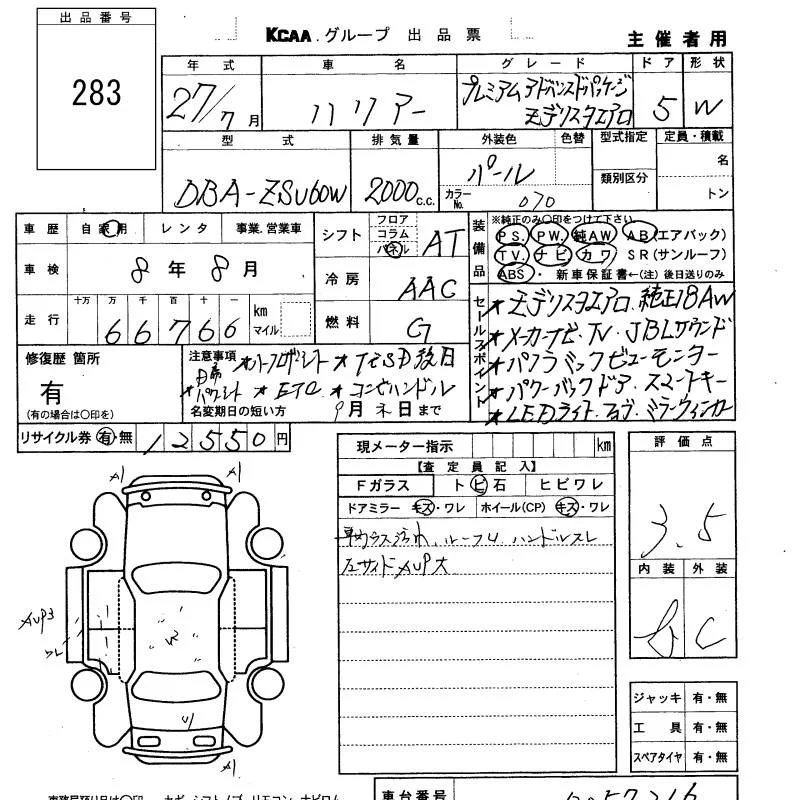 出品番号
283
KCAA グループ 出品票
主催者用
年式 車名 グレード ドア 形状
27/7月 ハリアー プレミアムアドバンスドパッケージ 5 W
モデリスタエアロ
型式 排気量 外装色 色替 型式指定 定員・積載
DBA-ZSU60W 2000c.c. パール 名
類別区分
カラーNo. 070 トン
車歴 自家用 レンタ 事業.営業車
車検 8年8月
走行 十万 万 千 百 十 一 km マイル
66766
シフト フロア コラム パネル AT
冷房 AAC
燃料 G
装備品
※純正のみ○印をつけて下さい
PS. PW. 純AW AB(エアバック)
TV. ナビ カワ SR(サンルーフ)
ABS・ 新車保証書←(注)後日送りのみ
セールスポイント
★モデリスタエアロ.純正18AW
★メーカーナビ・TV・JBLサウンド
★パノラミックビューモニター
★パワーバックドア・スマートキー
★LEDライト・フォグ・ミラーウィンカー
修復歴 箇所
有
(有の場合は○印を)
注意事項
D席パワーシート ★ETC ★コンビハンドル
名変期日の短い方 9月 日まで
リサイクル券 有・無 12550円
現メーター指示 km
【査定員記入】
Fガラス トビ石 ヒビワレ
ドアミラー キズ・ワレ ホイール(CP) キズ・ワレ
車内ウス汚れ.ルーフU.ハンドルスレ
左サイドAUP大
評価点
3.5
内装 外装
C
ジャッキ 有・無
工具 有・無
スペアタイヤ 有・無
A1 A1
AUP3
U2
U1
車台番号